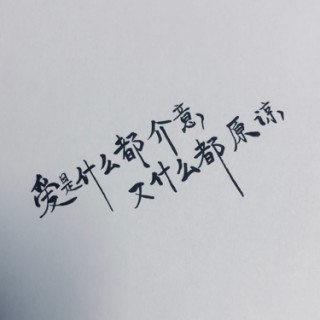 爱是什么都介意,
又什么都原谅,